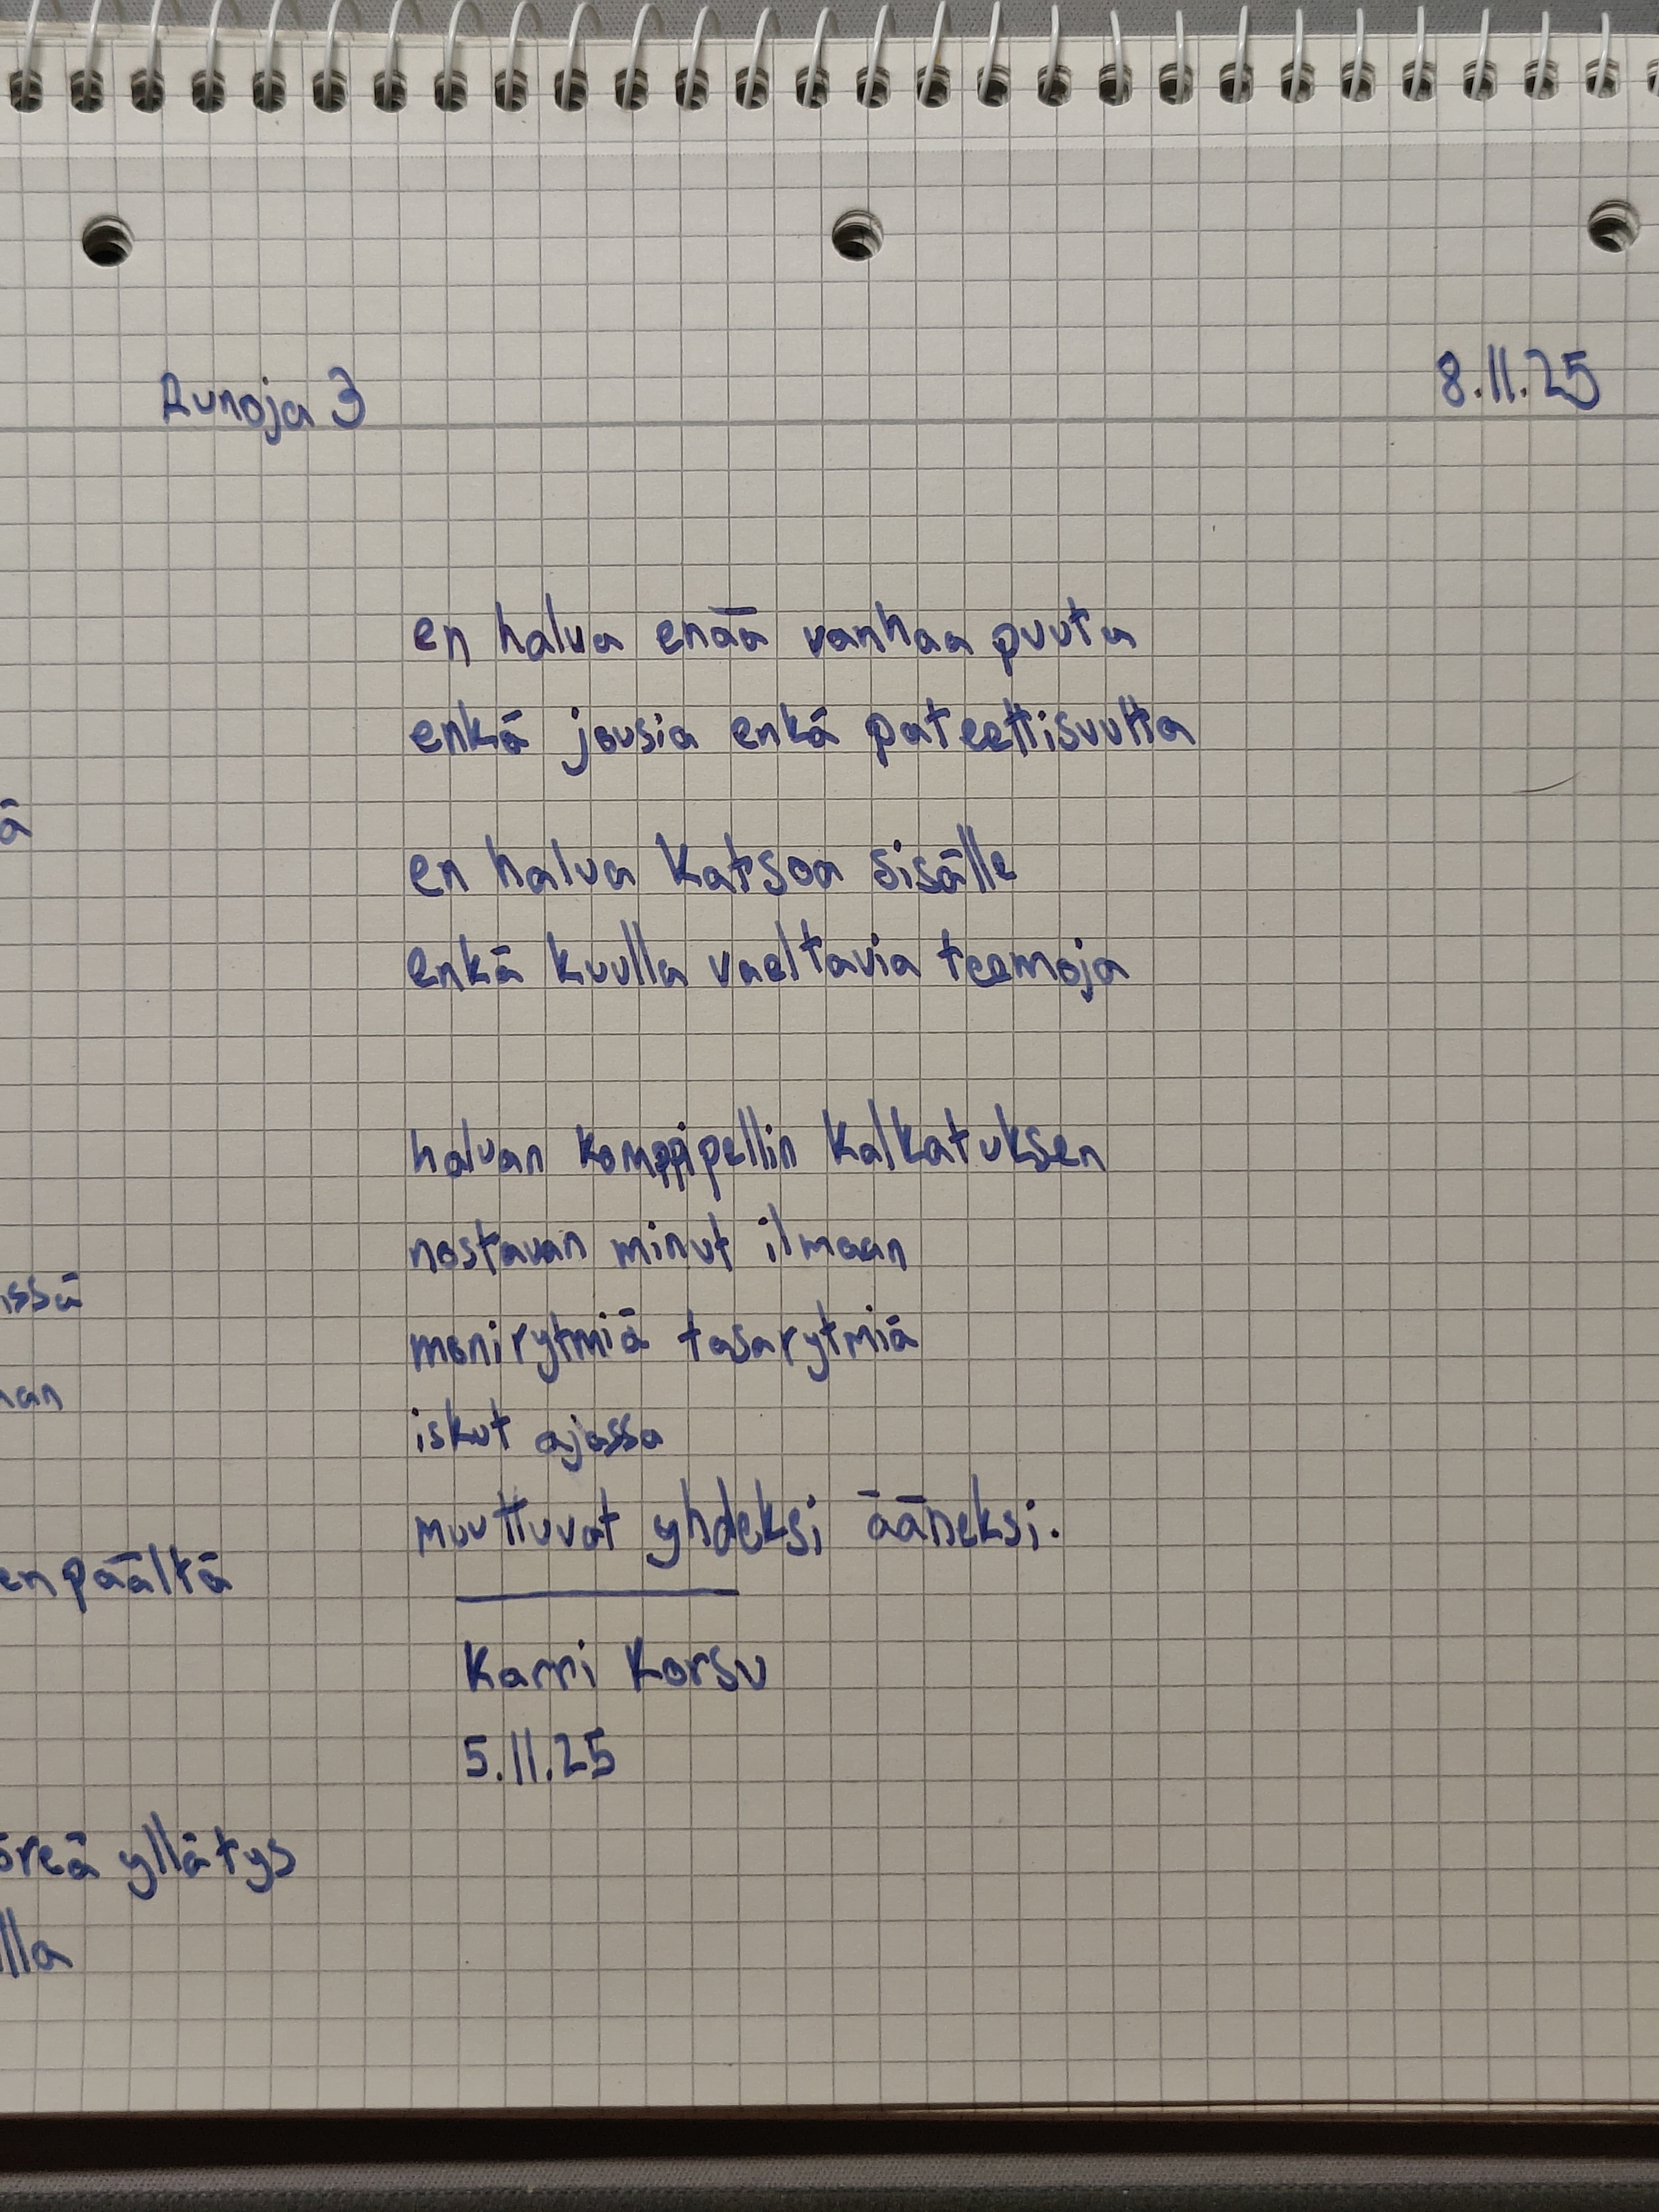 Runoja 3
8.11.25
en halua enää vanhaa puuta
enkä jousia enkä pateettisuutta
en halua katsoa sisälle
enkä kuulla vaeltavia teemoja
haluan komppipellin kalkatuksen
nostavan minut ilmaan
monirytmiä tasarytmiä
iskut ajassa
muuttuvat yhdeksi ääneksi.
Karri Korsu
5.11.25
ä
issä
nan
enpäältä
öreä yllätys
lla